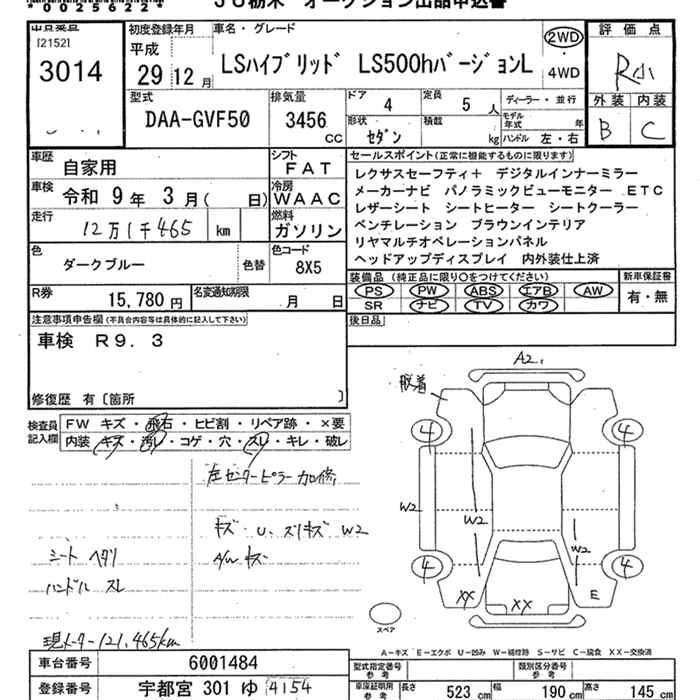 *0025622*
JU栃木 オークション出品申込書
[2152]
3014
初度登録年月
平成
29年12月
車名・グレード
LSハイブリッド LS500hバージョンL
2WD
・
4WD
評価点
R小
外装 内装
B C
型式
DAA-GVF50
排気量
3456
CC
ドア
4
定員
5 人
形状
セダン
積載
kg
ディーラー・並行
モデル年式 年
ハンドル 左・右
車歴
自家用
シフト
FAT
車検
令和 9年 3月( 日)
冷房
WAAC
走行
12万1千465 km
燃料
ガソリン
色
ダークブルー
色替
色コード
8X5
R券
15,780円
名変通知期限
月 日
セールスポイント(正常に機能するものに限ります)
レクサスセーフティ+ デジタルインナーミラー
メーカーナビ パノラミックビューモニター ETC
レザーシート シートヒーター シートクーラー
ベンチレーション ブラウンインテリア
リヤマルチオペレーションパネル
ヘッドアップディスプレイ 内外装仕上済
装備品 (純正品に限り○をつけてください)
PS PW ABS エアB AW
SR ナビ TV カワ
新車保証書
有・無
後日品
注意事項申告欄(不具合内容等は具体的に記入して下さい)
車検 R9.3
修復歴 有〔箇所 〕
検査員記入欄
FW キズ・飛石・ヒビ割・リペア跡・×要
内装 キズ・汚レ・コゲ・穴・スレ・キレ・破レ
左センターピラー加修
キズ U. スリキズ W2
A/W キズ
シート ヘタリ
ハンドル スレ
現メーター 121,465km
A2.
4 4
W2
W2
W2
4 4
XX XX E
スペア
A-キズ E-エクボ U-凹み W-補修跡 S-サビ C-腐食 XX-交換済
車台番号
6001484
登録番号
宇都宮 301 ゆ 4154
型式指定番号
参考
類別区分番号
参考
車庫証明用
参考
長さ
523 cm
幅
190 cm
高さ
145 cm